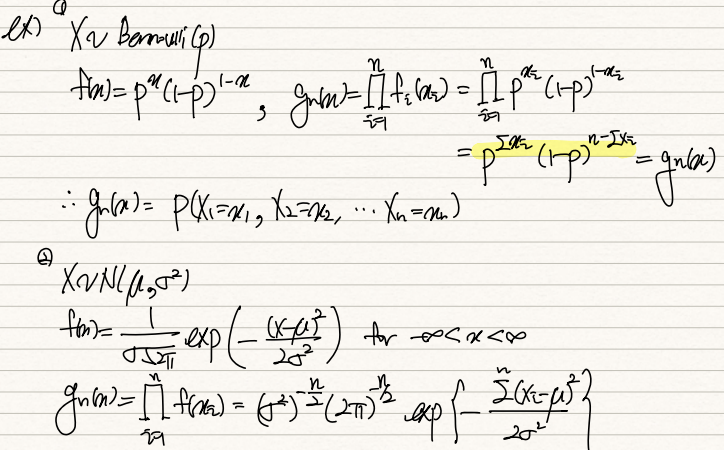 ex) ① X ~ Bernoulli(p)
f(x) = p^x (1-p)^{1-x} , g_n(x) = ∏_{i=1}^{n} f_i(x_i) = ∏_{i=1}^{n} p^{x_i} (1-p)^{1-x_i}
= p^{Σx_i} (1-p)^{n-Σx_i} = g_n(x)
∴ g_n(x) = P(X_1=x_1, X_2=x_2, ⋯ X_n=x_n)
②
X ~ N(μ, σ²)
f(x) = \frac{1}{σ√2π} exp(-\frac{(x-μ)²}{2σ²}) for -∞<x<∞
g_n(x) = ∏_{i=1}^{n} f(x_i) = (σ²)^{-\frac{n}{2}} (2π)^{-\frac{n}{2}} exp{-\frac{Σ^{n}(x_i-μ)²}{2σ²}}